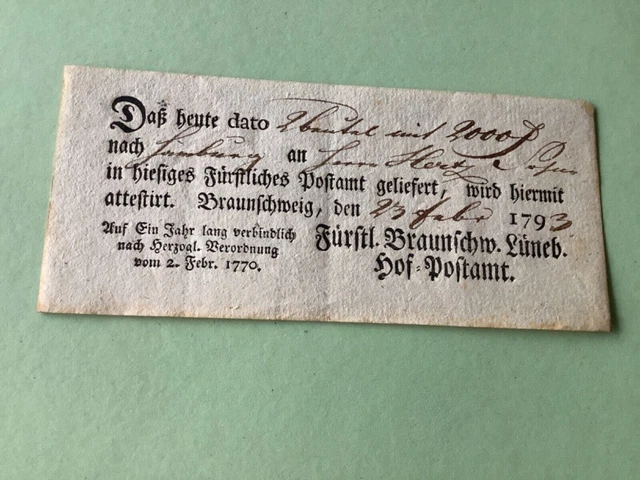 Daß heute dato 2 beutel mit 2000
nach Hamburg an Herr Hertz
in hiesiges Fürstliches Postamt geliefert, wird hiermit
attestirt. Braunschweig, den 23 Febr 1793
Auf Ein Jahr lang verbindlich
nach Herzogl. Verordnung
vom 2. Febr. 1770.
Fürstl. Braunschw. Lüneb.
Hof-Postamt.